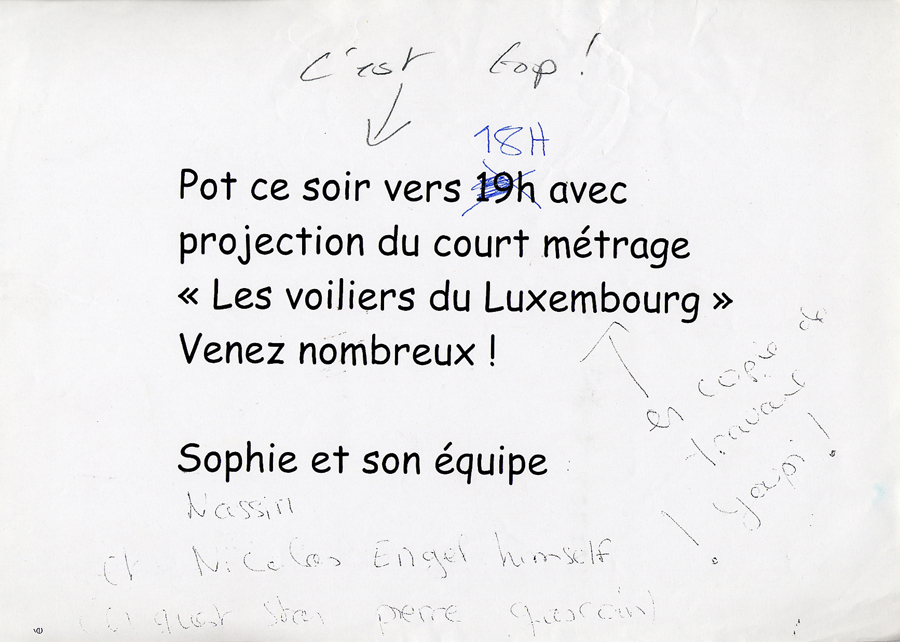 C'est top !
18H
Pot ce soir vers 19h avec
projection du court métrage
« Les voiliers du Luxembourg »
Venez nombreux !
en copie de
travail
! Youpi !
Sophie et son équipe
Nassim
et Nicolas Engel himself
guest star pierre